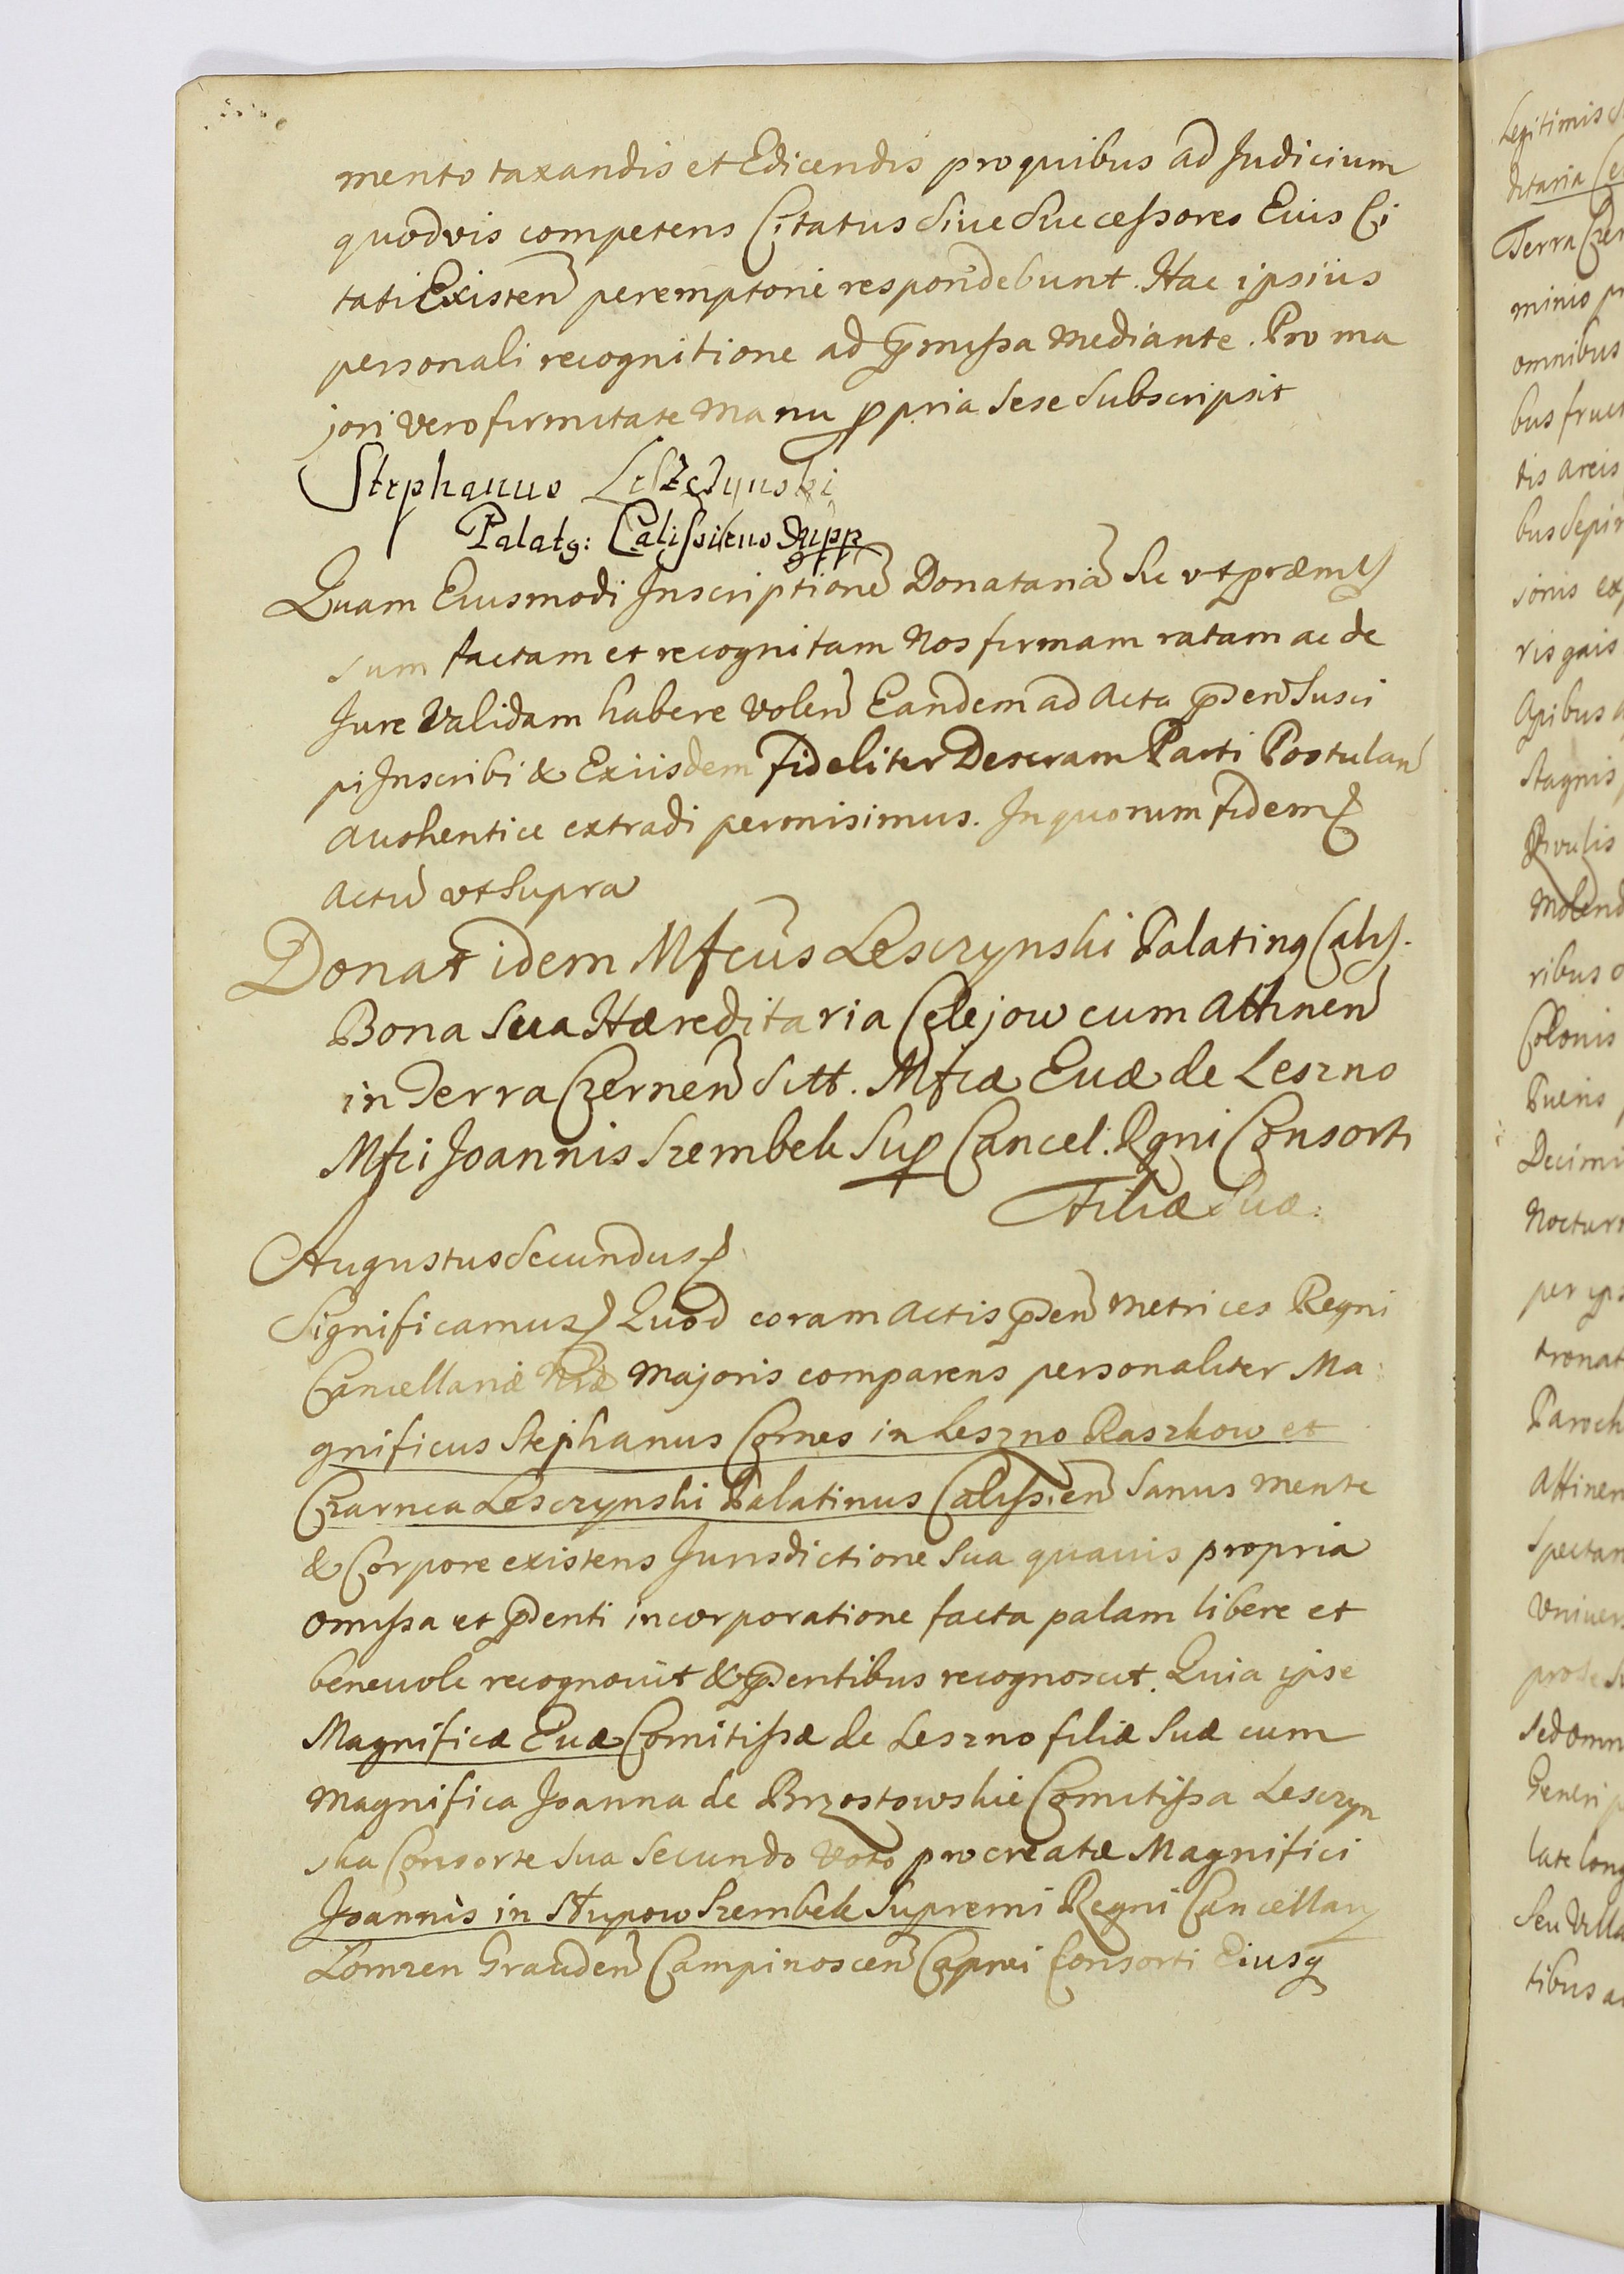 mento taxandis et Edicendis pro quibus ad Judicium
quodvis competens Citatus Siue Successores Eius Ci
tati Existen peremptorie respondebunt. Hac ipsius
personali recognitione ad pmissa Mediante. Pro ma
jori vero firmitate Manu ppria Sese Subscripsit
Stephanus Leszczynski
Palatg: Calissiens mpp
Quam Eiusmodi Inscriptione Donataria Sic vt præmis
sum factam et recognitam Nos firmam ratam ac de
Jure Validam habere volen Eandem ad Acta pden Susci
pi Inscribi & Exiisdem fideliter Descram Parti Postulan
authentice extradi permisimus. In quorum fidem
Actu vt Supra
Donat idem Mfcus Lesczynski Palating Calis.
Bona Sua Hæreditaria Celejow cum Attinen
in Terra Czernen Sitt. Mfcæ Euæ de Leszno
Mfci Joannis Szembek Sup Cancel. Rgni Consorti
Filiæ Suæ.
Augustus Secundus
Significamus Quod coram Actis pden Metrices Regni
Cancellariæ Nræ Majoris comparens personaliter Ma
gnificus Stephanus Comes in Leszno Raszkow et
Czarnca Lesczynski Palatinus Calissien Sanus mente
& Corpore existens Jurisdictione Sua quauis propria
omissa et pdenti incorporatione facta palam libere et
beneuole recognouit & pdentibus recognoscit. Quia ipse
Magnificæ Euæ Comitissæ de Leszno filiæ Suæ cum
Magnifica Joanna de Brzostowskie Comitissa Lesczyn
ska Consorte Sua Secundo Voto procreatæ Magnifici
Joannis in Słupow Szembek Supremi Regni Cancellarij
Lomzen Grauden Campinoscen Capnei Consorti Eiusq
Legitimis
ditaria
Terra Czer
minio
omnibus
bus fruct
tis areis
bus Sepi
ionis
ris gais
Apibus
Stagnis
Rivulis
Molend
ribus
Colonis
Pueris
Decimi
Noctur
per ips
tronat
Paroch
Attinen
Spectan
Vniuer
pro se
Sed omn
Generi
late long
Seu Villa
tibus